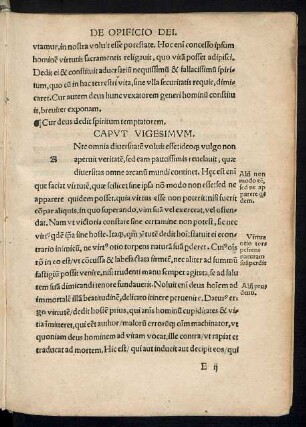 DE OPIFICIO DEI.
vtamur, in nostra voluit esse potestate. Hoc eni concesso ipsum
hominē virtutis sacramentis religauit, quo vitā posset adipisci.
Dedit ei & constituit aduersariū nequissimū & fallacissimū spiri-
tum, quo cū in hac terrestri vita, sine vlla securitatis requie, dimi-
caret. Cur autem deus hunc vexatorem generi hominū constitu
it, breuiter exponam.
¶ Cur deus dedit spiritum temptatorem.
CAPVT VIGESIMVM.
Nte omnia diuersitatē voluit esse: ideoq; vulgo non
A
aperuit veritatē, sed eam paucissimis reuelauit, quæ
diuersitas omne arcanū mundi continet. Hęc est eni
que faciat virtutē, quæ scilicet sine ipsa nō modo non esse sed ne
apparere quidem posset. quia virtus esse non poterit, nisi fuerit
cōpar aliquis, in quo superando, vim suā vel exerceat, vel ostē
dat. Nam vt victoria constare sine certamine non potest, sic nec
virtus
Alii non
modo eē,
sed ne ap
parere qi
dem.
Virtus
otio tor
pescens
naturam
suā perdit
inimico, ne virtus otio torpens natura suā perderet.
in eo est vt cōcussa & labefactata firmet, nec aliter ad summū
fastigiū possit venire, nisi prudenti manu semper agitata, se ad salu
tem sua dimicandi tenore fundauerit. Noluit eni deus hoīem ad
immortalē illā beatitudinē, delicato itinere peruenire.
ergo virtutē, dedit hostē prius, qui
tia immitteret, qui eēt author
quoniam deus hominem ad vitam vocat, ille contra, vt rapiat et
traducat ad mortem. Hic est, qui aut inducit aut decipit eos, qui
E ij